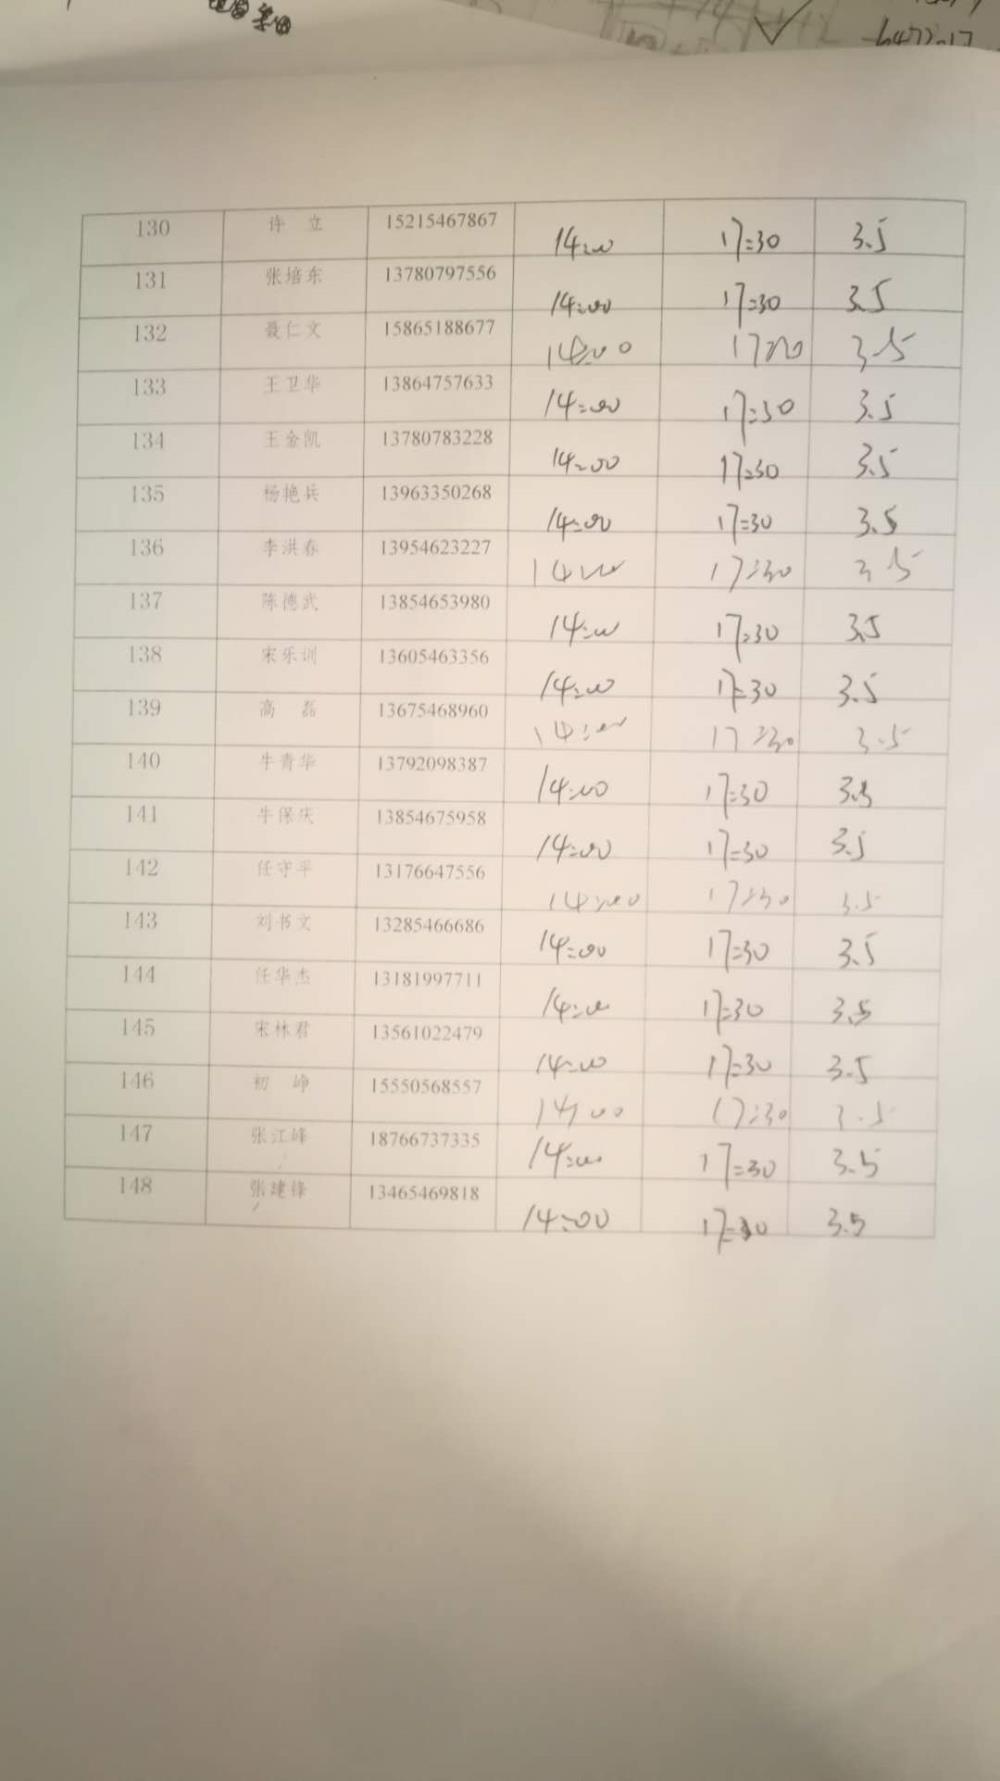 130 许 立 15215467867 14:00 17:30 3.5
131 张培东 13780797556 14:00 17:30 3.5
132 聂仁文 15865188677 14:00 17:30 3.5
133 王卫华 13864757633 14:00 17:30 3.5
134 王金凯 13780783228 14:00 17:30 3.5
135 杨艳兵 13963350268 14:00 17:30 3.5
136 李洪春 13954623227 14:00 17:30 3.5
137 陈德武 13854653980 14:00 17:30 3.5
138 宋乐训 13605463356 14:00 17:30 3.5
139 高 磊 13675468960 14:00 17:30 3.5
140 牛青华 13792098387 14:00 17:30 3.5
141 牛保庆 13854675958 14:00 17:30 3.5
142 任守平 13176647556 14:00 17:30 3.5
143 刘书文 13285466686 14:00 17:30 3.5
144 任华杰 13181997711 14:00 17:30 3.5
145 宋林君 13561022479 14:00 17:30 3.5
146 初 峥 15550568557 14:00 17:30 3.5
147 张江峰 18766737335 14:00 17:30 3.5
148 张建锋 13465469818 14:00 17:30 3.5